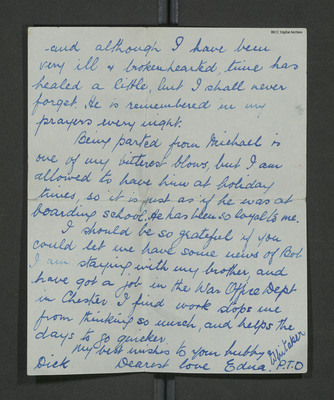 IBCC Digital Archive
-and although I have been
very ill & brokenhearted, time has
healed a little, but I shall never
forget. He is remembered in my
prayers every night.
Being parted from Michael is
one of my bitterest blows, but I am
allowed to have him at holiday
times, so it is just as if he was at
boarding school. He has been so loyal to me.
I should be so grateful if you
could let me have some news of Bob
I am staying with my brother, and
have got a job in the War Office Dept
in Chester. I find work stops me
from thinking so much, and helps the
days to go quicker.
My best wishes to your hubby
Dick Dearest love Edna. P.T.O
Whitaker